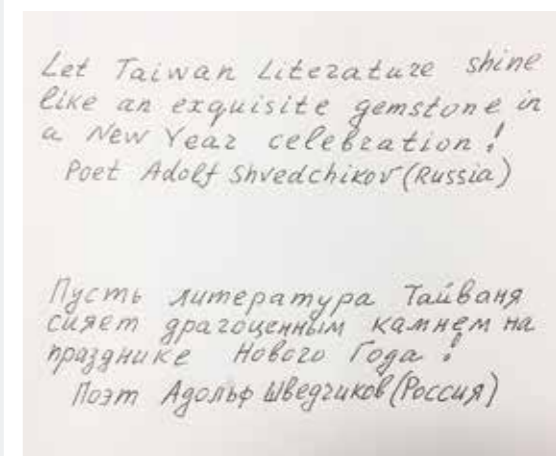 Let Taiwan Literature shine
like an exquisite gemstone in
a New Year celebration!
Poet Adolf Shvedchikov (Russia)
Пусть литература Тайваня
сияет драгоценным камнем на
празднике Нового Года!
Поэт Адольф Шведчиков (Россия)